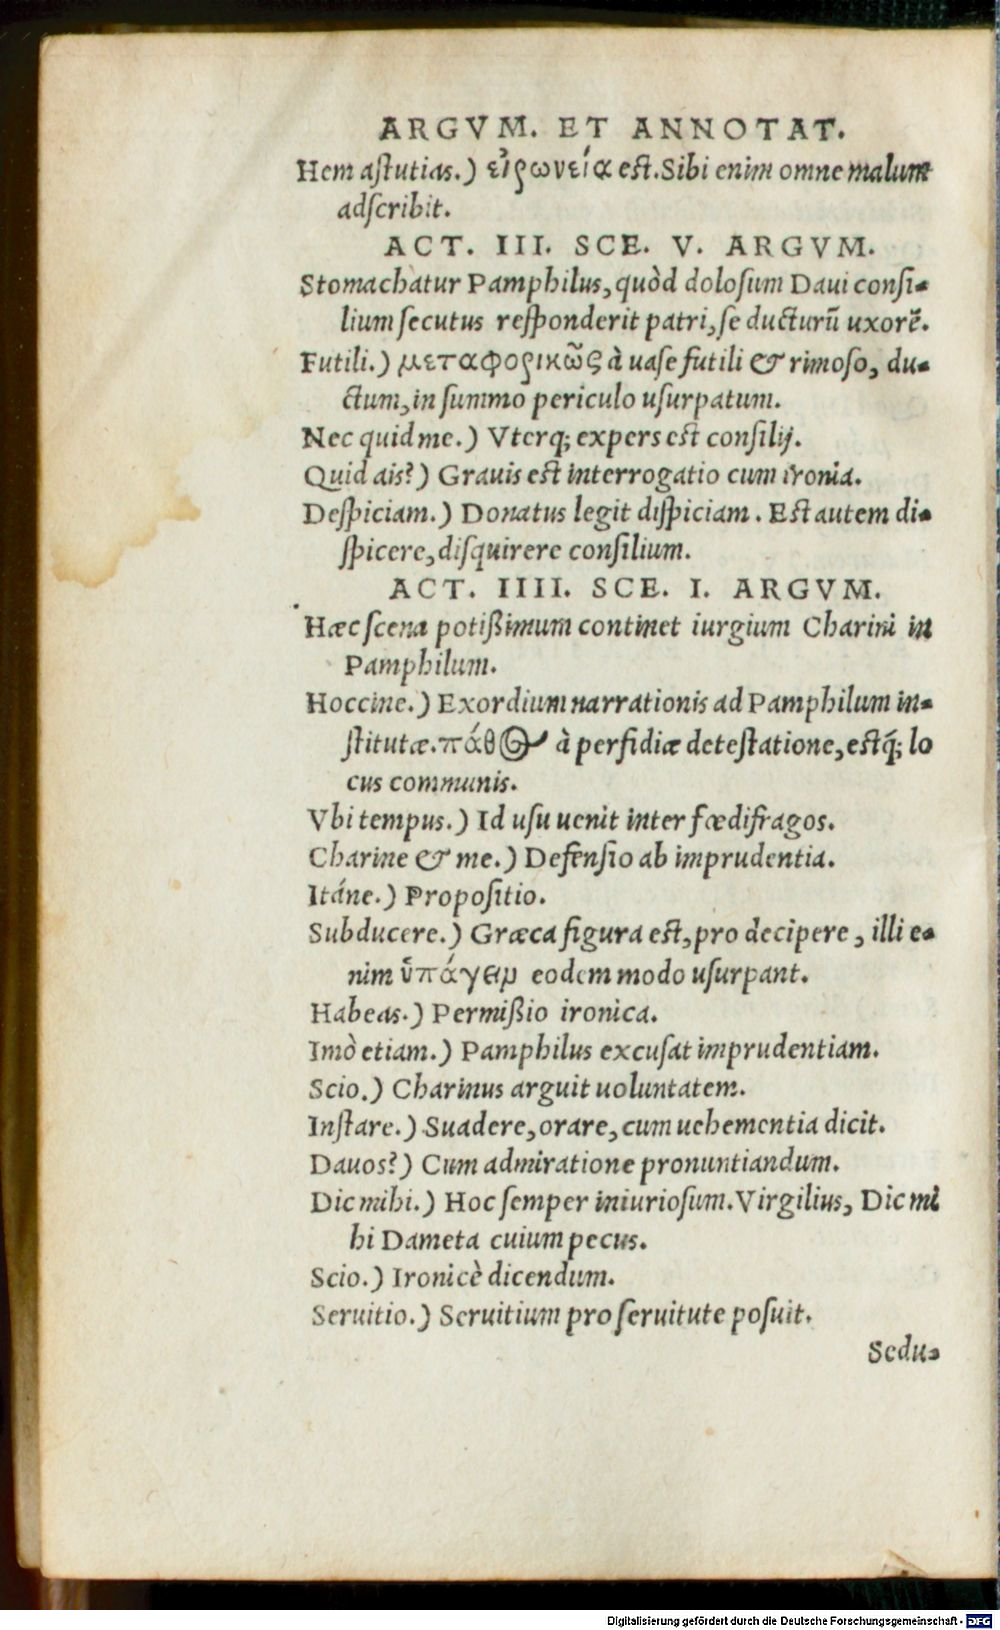 ARGVM. ET ANNOTAT.
Hem aſtutias.) εἰρωνεία eſt. Sibi enim omne malum
adſcribit.
ACT. III. SCE. V. ARGVM.
Stomachatur Pamphilus, quòd doloſum Daui conſi-
lium ſecutus reſponderit patri, ſe ducturū uxorē.
Futili.) μεταφορικῶς à uaſe futili & rimoſo, du-
ctum, in ſummo periculo uſurpatum.
Nec quid me.) Vterq; expers eſt conſilij.
Quid ais?) Grauis eſt interrogatio cum ironia.
Deſpiciam.) Donatus legit diſpiciam. Eſt autem di-
ſpicere, diſquirere conſilium.
ACT. IIII. SCE. I. ARGVM.
Hæc ſcena potißimum continet iurgium Charini in
Pamphilum.
Hoccine.) Exordium narrationis ad Pamphilum in-
ſtitutæ. πάθος à perfidiæ deteſtatione, eſtq́; lo
cus communis.
Vbi tempus.) Id uſu uenit inter fœdifragos.
Charine & me.) Defenſio ab imprudentia.
Itáne.) Propoſitio.
Subducere.) Græca figura eſt, pro decipere, illi e-
nim ὑπάγειν eodem modo uſurpant.
Habeas.) Permißio ironica.
Imò etiam.) Pamphilus excuſat imprudentiam.
Scio.) Charinus arguit uoluntatem.
Inſtare.) Suadere, orare, cum uehementia dicit.
Dauos?) Cum admiratione pronuntiandum.
Dic mihi.) Hoc ſemper iniurioſum. Virgilius, Dic mi
hi Dameta cuium pecus.
Scio.) Ironicè dicendum.
Seruitio.) Seruitium pro ſeruitute poſuit.
Sedu-
Digitalisierung gefördert durch die Deutsche Forschungsgemeinschaft - DFG